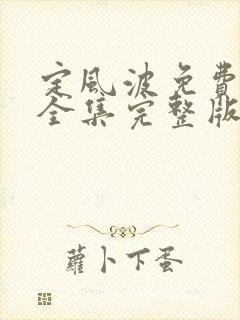 定風波免費
全集完整版
蘿卜下蛋